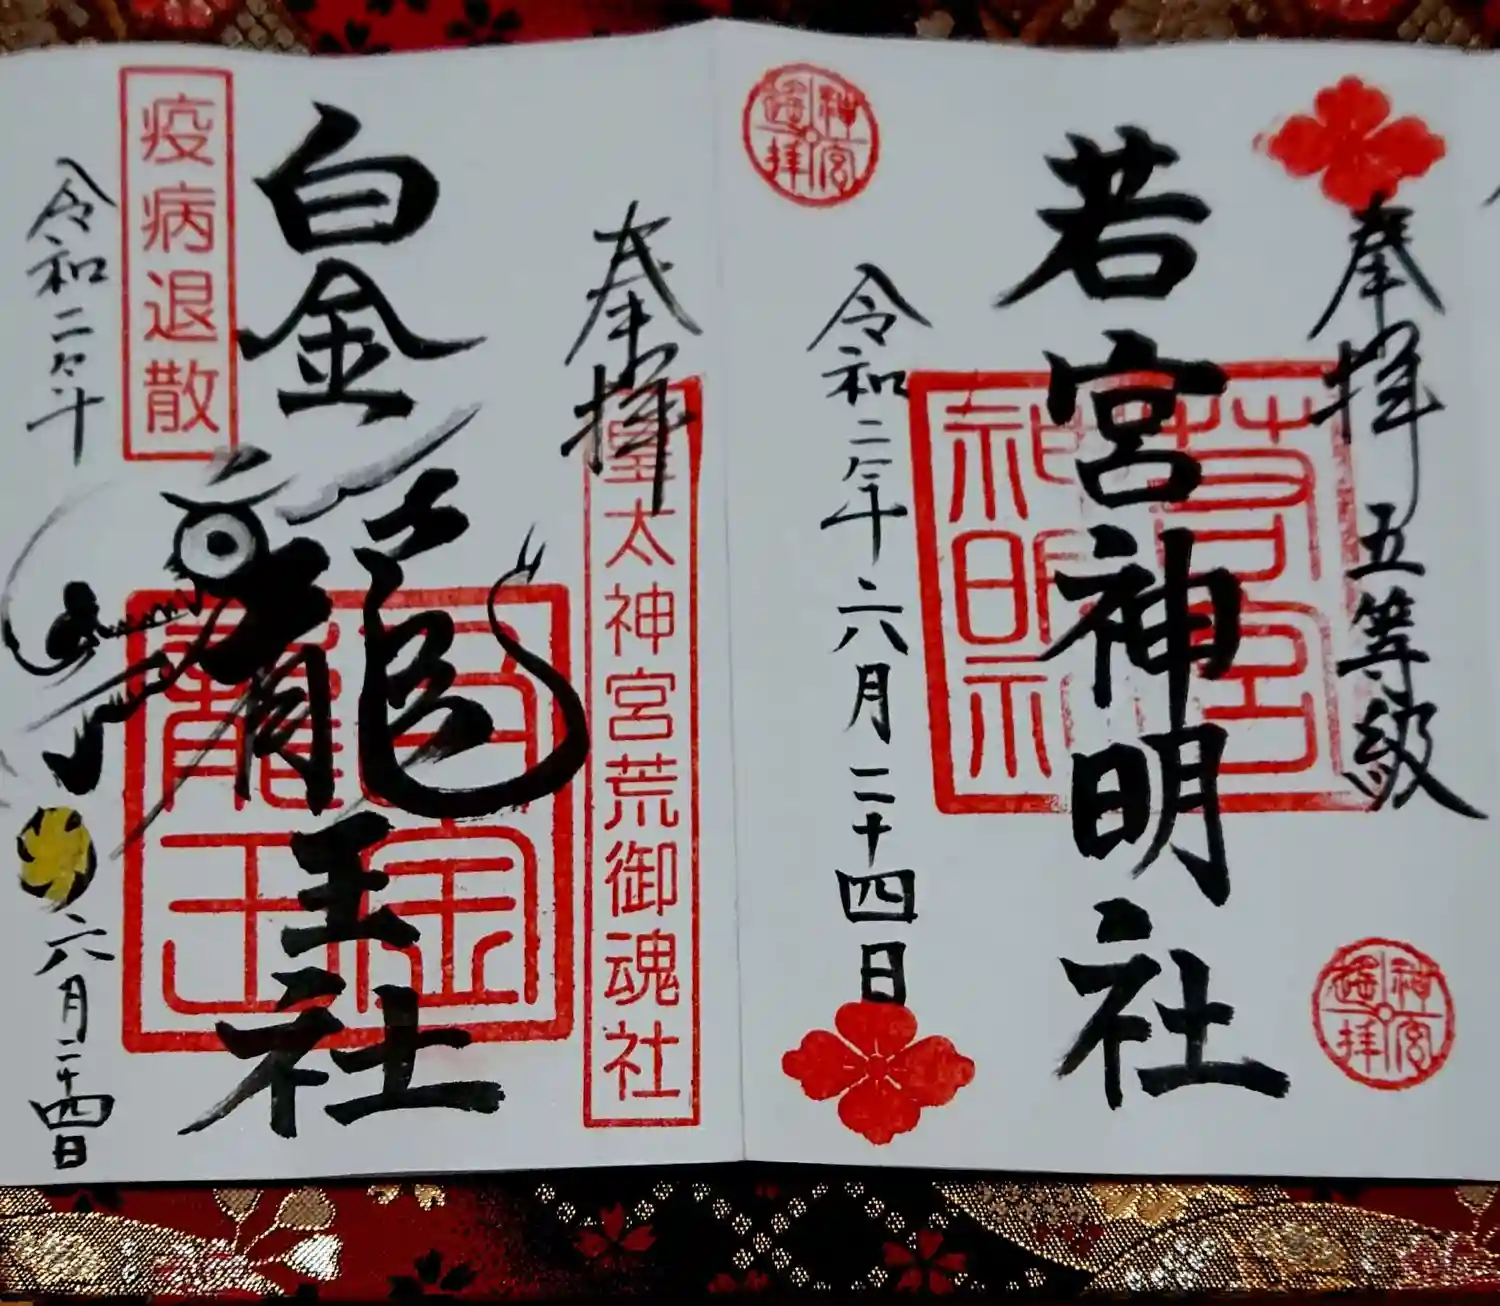 神宮遥拝
奉拝 五等級
若宮神明社
若宮神明社
令和二年六月二十四日
神宮遥拝
奉拝
皇太神宮荒御魂社
白金龍王社
白金龍王
疫病退散
令和二年六月二十四日